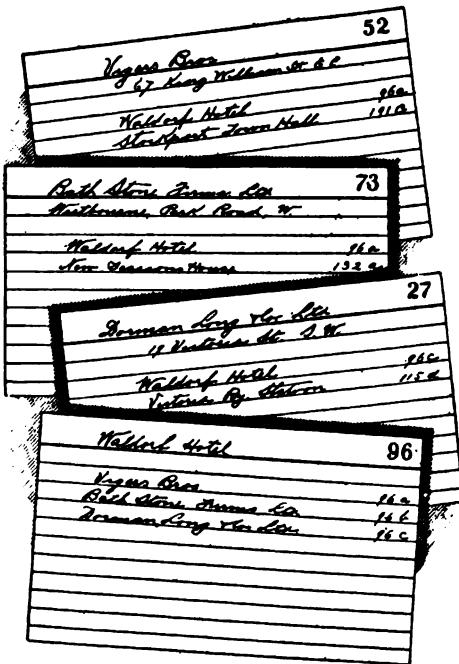 52
Vigers Bros
67 King William St E C
Waldorf Hotel 96a
Stockport Town Hall 191B
73
Bath Stone Firms Ltd
Westbourne, Park Road, W.
Waldorf Hotel 96a
New House 132a
27
Dorman Long & Co Ltd
19 Victoria St. S.W.
Waldorf Hotel 96c
Victoria Ry Station 115d
96
Waldorf Hotel
Vigers Bros 96a
Bath Stone Firms Ltd 96b
Dorman Long & Co Ltd 96c